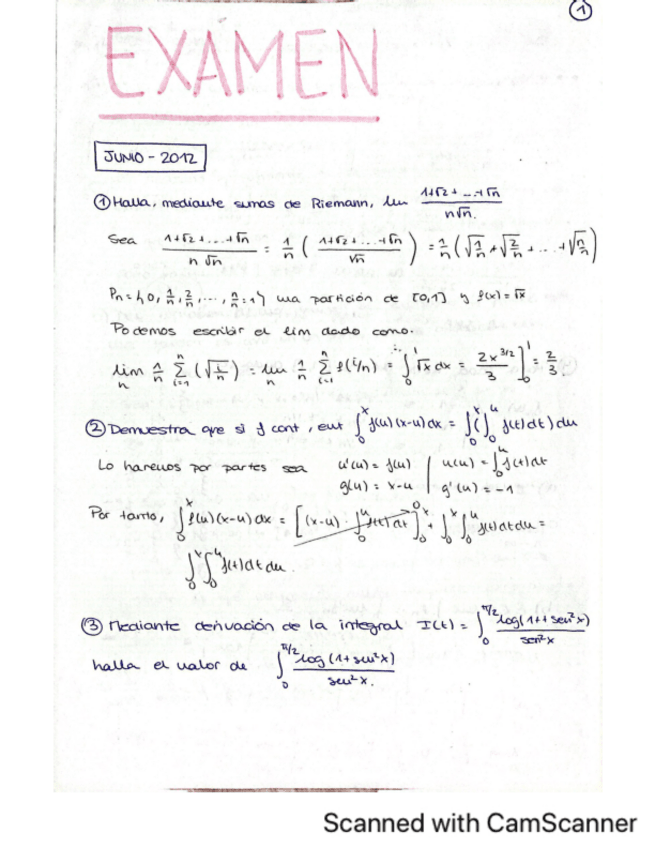 1
EXAMEN
JUNIO - 2012
① Halla, mediante sumas de Riemann, lim (1+√2+...+√n)/(n√n).
Sea (1+√2+...+√n)/(n√n) = 1/n ( (1+√2+...+√n)/√n ) = 1/n (√(1/n)+√(2/n)+...+√(n/n))
Pn = {0, 1/n, 2/n, ..., n/n = 1} una partición de [0,1] y f(x) = √x
Podemos escribir el lim dado como:
lim_n 1/n ∑_{i=1}^{n} (√(i/n)) = lim_n 1/n ∑_{i=1}^{n} f(i/n) = ∫_0^1 √x dx = 2x^{3/2}/3 ]_0^1 = 2/3.
② Demuestra que si f cont, ent ∫_0^x f(u)(x-u)dx = ∫_0^x (∫_0^u f(t)dt)du
Lo haremos por partes sea u'(u) = f(u) | u(u) = ∫_0^u f(t)dt
g(u) = x-u | g'(u) = -1
Por tanto, ∫_0^x f(u)(x-u)dx = [(x-u)·∫_0^u f(t)dt]_0^x + ∫_0^x ∫_0^u f(t)dtdu =
∫_0^x ∫_0^u f(t)dtdu.
③ Mediante derivación de la integral I(t) = ∫_0^{π/2} log(1+t sen²x)/sen²x
halla el valor de ∫_0^{π/2} log(1+sen²x)/sen²x.
Scanned with CamScanner